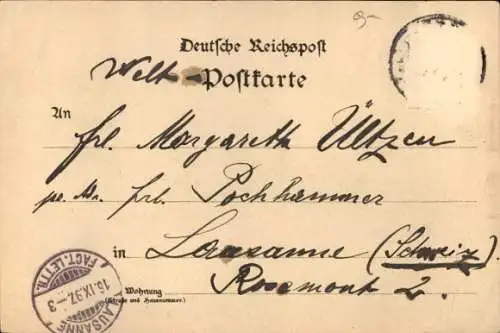 Deutsche Reichspost
Welt-Postkarte
An
frl. Margareth Ültzen
frl. Pochhammer
in Lausanne (Schweiz)
Rosemont 2.
Wohnung
(Straße und Hausnummer)
LAUSANNE
16.IX.97.-3
FACT. LETTR.